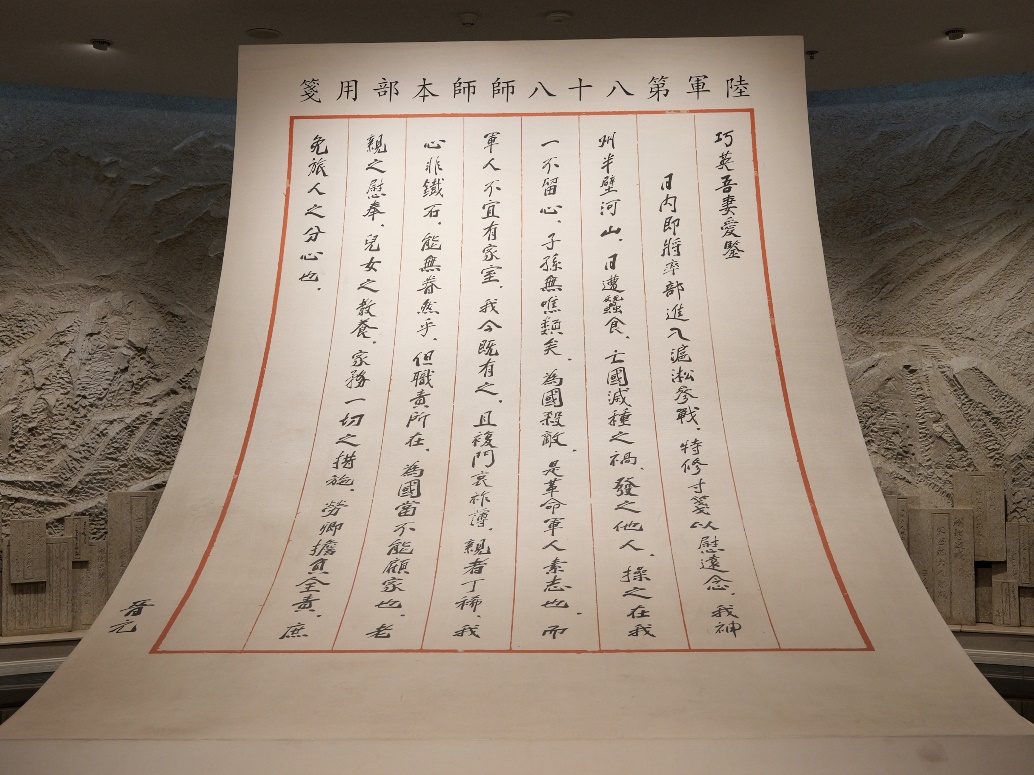 陸軍第八十八師師本部用箋
巧英吾妻愛鑒
日內即將率部進入滬淞參戰．特修寸箋以慰遠念．我神
州半壁河山．日遭蠶食．亡國滅種之禍．發之他人．操之在我
一不留心．子孫無噍類矣．為國殺敵．是革命軍人素志也．而
軍人不宜有家室．我今既有之．且複門衰祚薄．親者丁稀．我
心非鐵石．能無眷然乎．但職責所在．為國當不能顧家也．老
親之慰奉．兒女之教養．家務一切之措施．勞卿擔負全責．庶
免旅人之分心也．
晉元